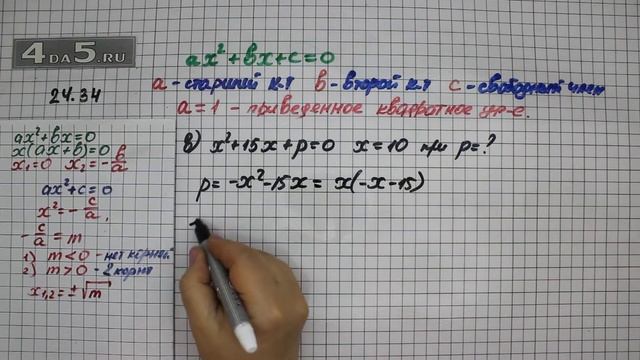 4DA5.RU
24.34
ax²+bx+c=0
a - старший к.т b - второй к.т c - свободный член
a=1 - приведенное квадратное ур-е.
ax²+bx=0
x(ax+b)=0
x₁=0 x₂=-b/a
ax²+c=0
x²=-c/a,
-c/a=m
1) m<0 - нет корней
2) m>0 - 2 корня
x₁,₂=±√m
в) x²+15x+p=0 x=10 при p=?
p=-x²-15x=x(-x-15)